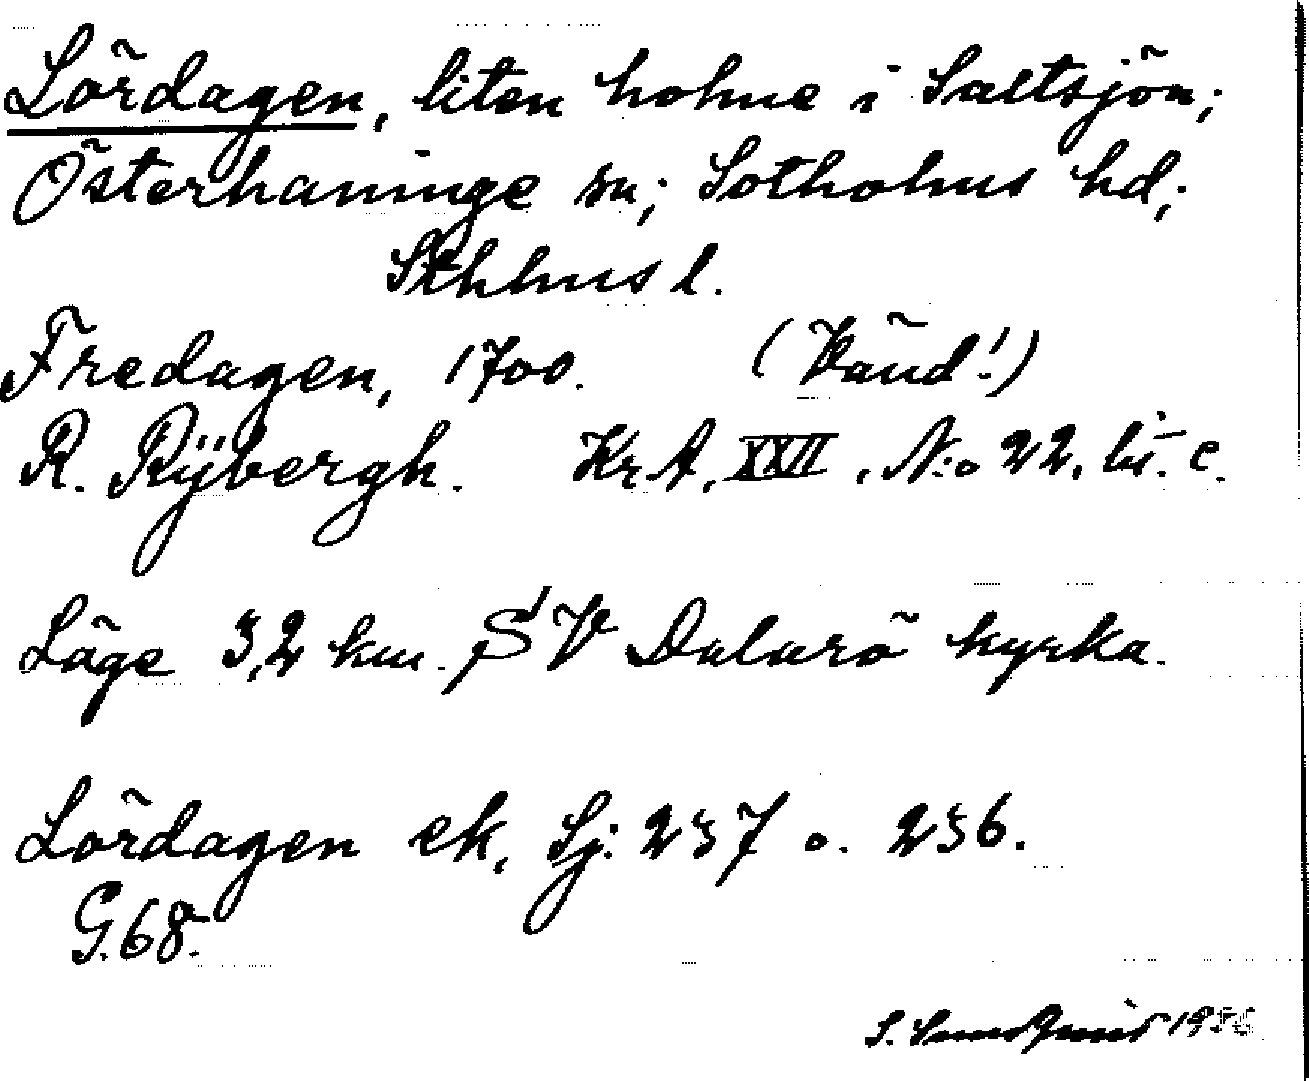 Lördagen, liten holme i Saltsjön;
Österhaninge sn; Sotholms hd;
Sthlms l.
Fredagen, 1700. (Vänd!)
R. Rÿbergh. Kr. A. XXII, N:o 22, lit. c.
Läge 3,2 km. SV Dalarö kyrka.
Lördagen ek, Sj: 237 o. 236.
G. 68.
S. Sundqvist 1936